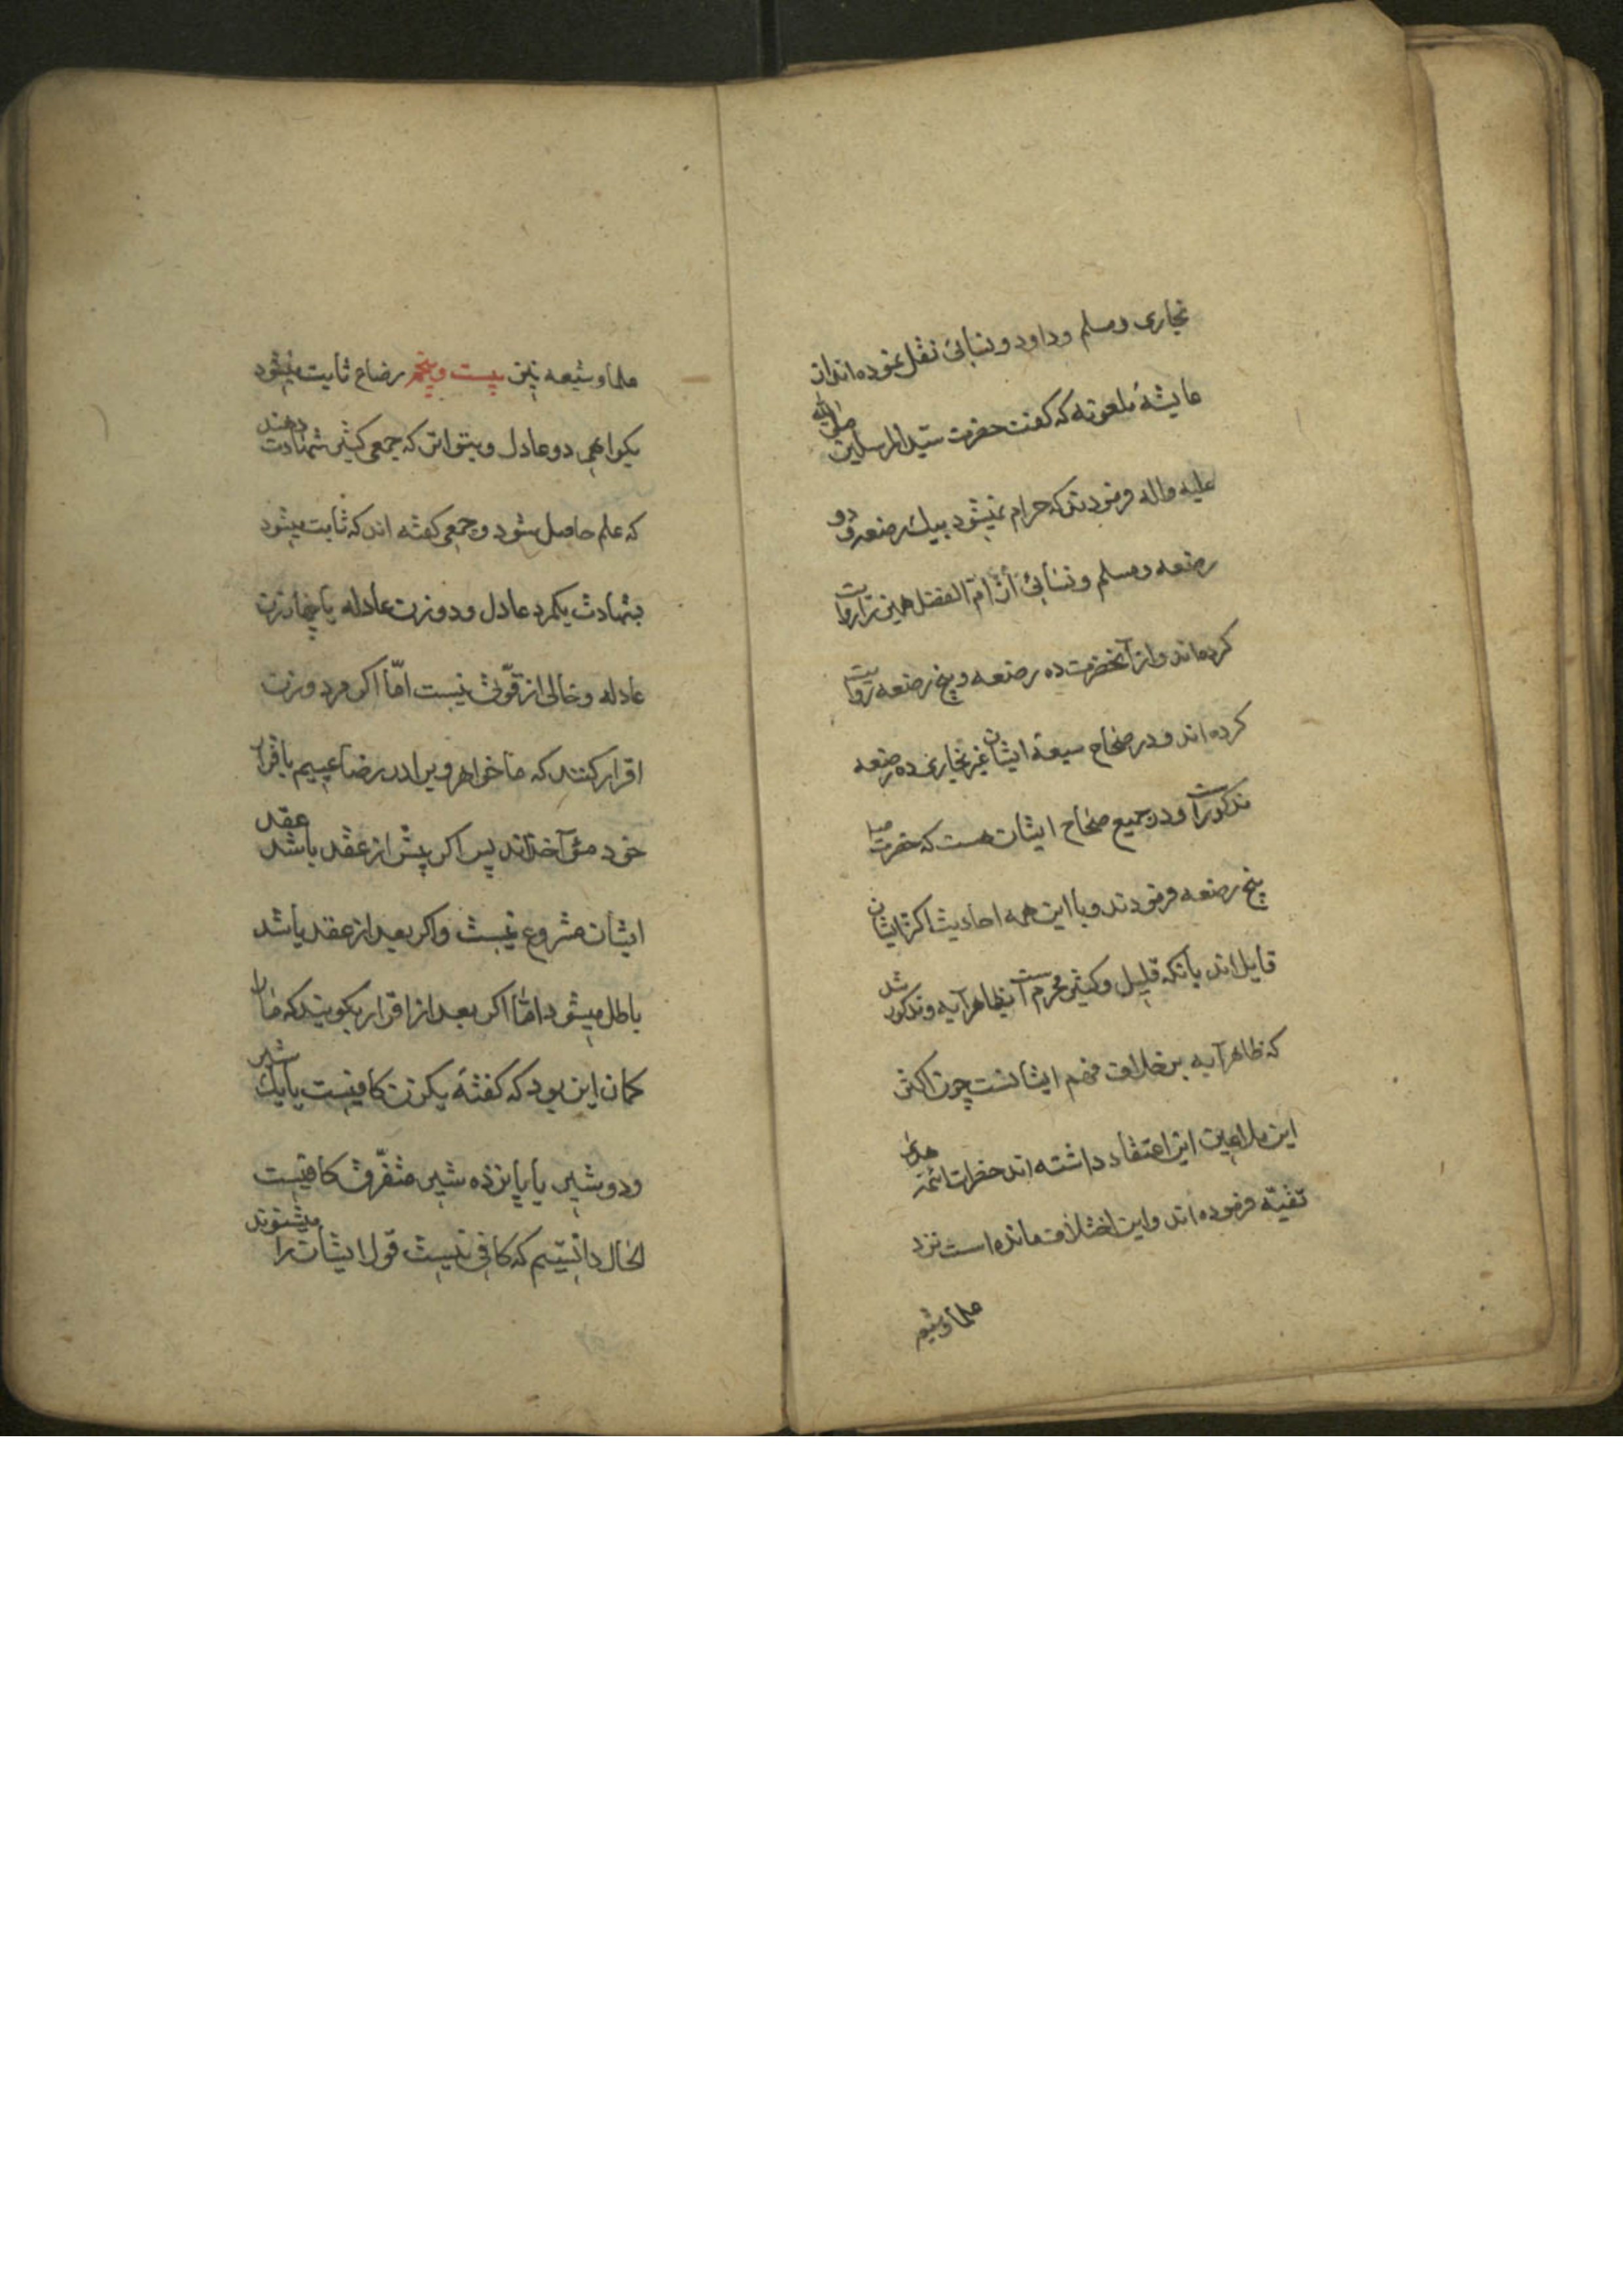 بخاری ومسلم وداود ونسائی نقل نموده‌اند از
عایشهٔ ملعونه که کفت حضرت سید المرسلین صلی الله
علیه واله فرمودند که حرام نمیشود بیک رضعه و دو
رضعه ومسلم ونسائی از ام الفضل همین را روایت
کرده‌اند واز آنحضرت ده رضعه و پنج رضعه روایت
کرده‌اند ودر صحاح سبعهٔ ایشان غیر بخاری ده رضعه
مذکور است ودر جمیع صحاح ایشان هست که حضرت
پنج رضعه فرمودند وبا این همه احادیث اکثر ایشان
قایل‌اند بانکه قلیل وکثیر محرم است بظاهر آیه ومذکور شد
که ظاهر آیه بر خلاف فهم ایشانست چون اکثر
این ملاعین این اعتقاد داشته‌اند حضرات ائمه هدی
تقیه فرموده‌اند واین اختلاف مانده است نزد
علماء شیعه
علماء شیعه نیز بیست وپنجم رضاع ثابت میشود
بکواهی دو عادل وبتواتر که جمعی کثیر شهادت دهند
که علم حاصل شود وجمعی کفته اند که ثابت میشود
بشهادت یکمرد عادل ودو زن عادله یا چهار زن
عادله وخالی از قوتی نیست اما اکر مرد وزن
اقرار کنند که ما خواهر وبرادر رضاعییم باقرار
خود مؤاخذاند پس اکر پیش از عقد باشد عقد
ایشان مشروع نیست واکر بعد از عقد باشد
باطل میشود اما اکر بعد از اقرار بکویند که ما را
کمان این بود که کفتهٔ یکزن کافیست یا یک شیر
ودو شیر یا پانزده شیر متفرق کافیست
الحال دانستیم که کافی نیست قول ایشان را میشنوند